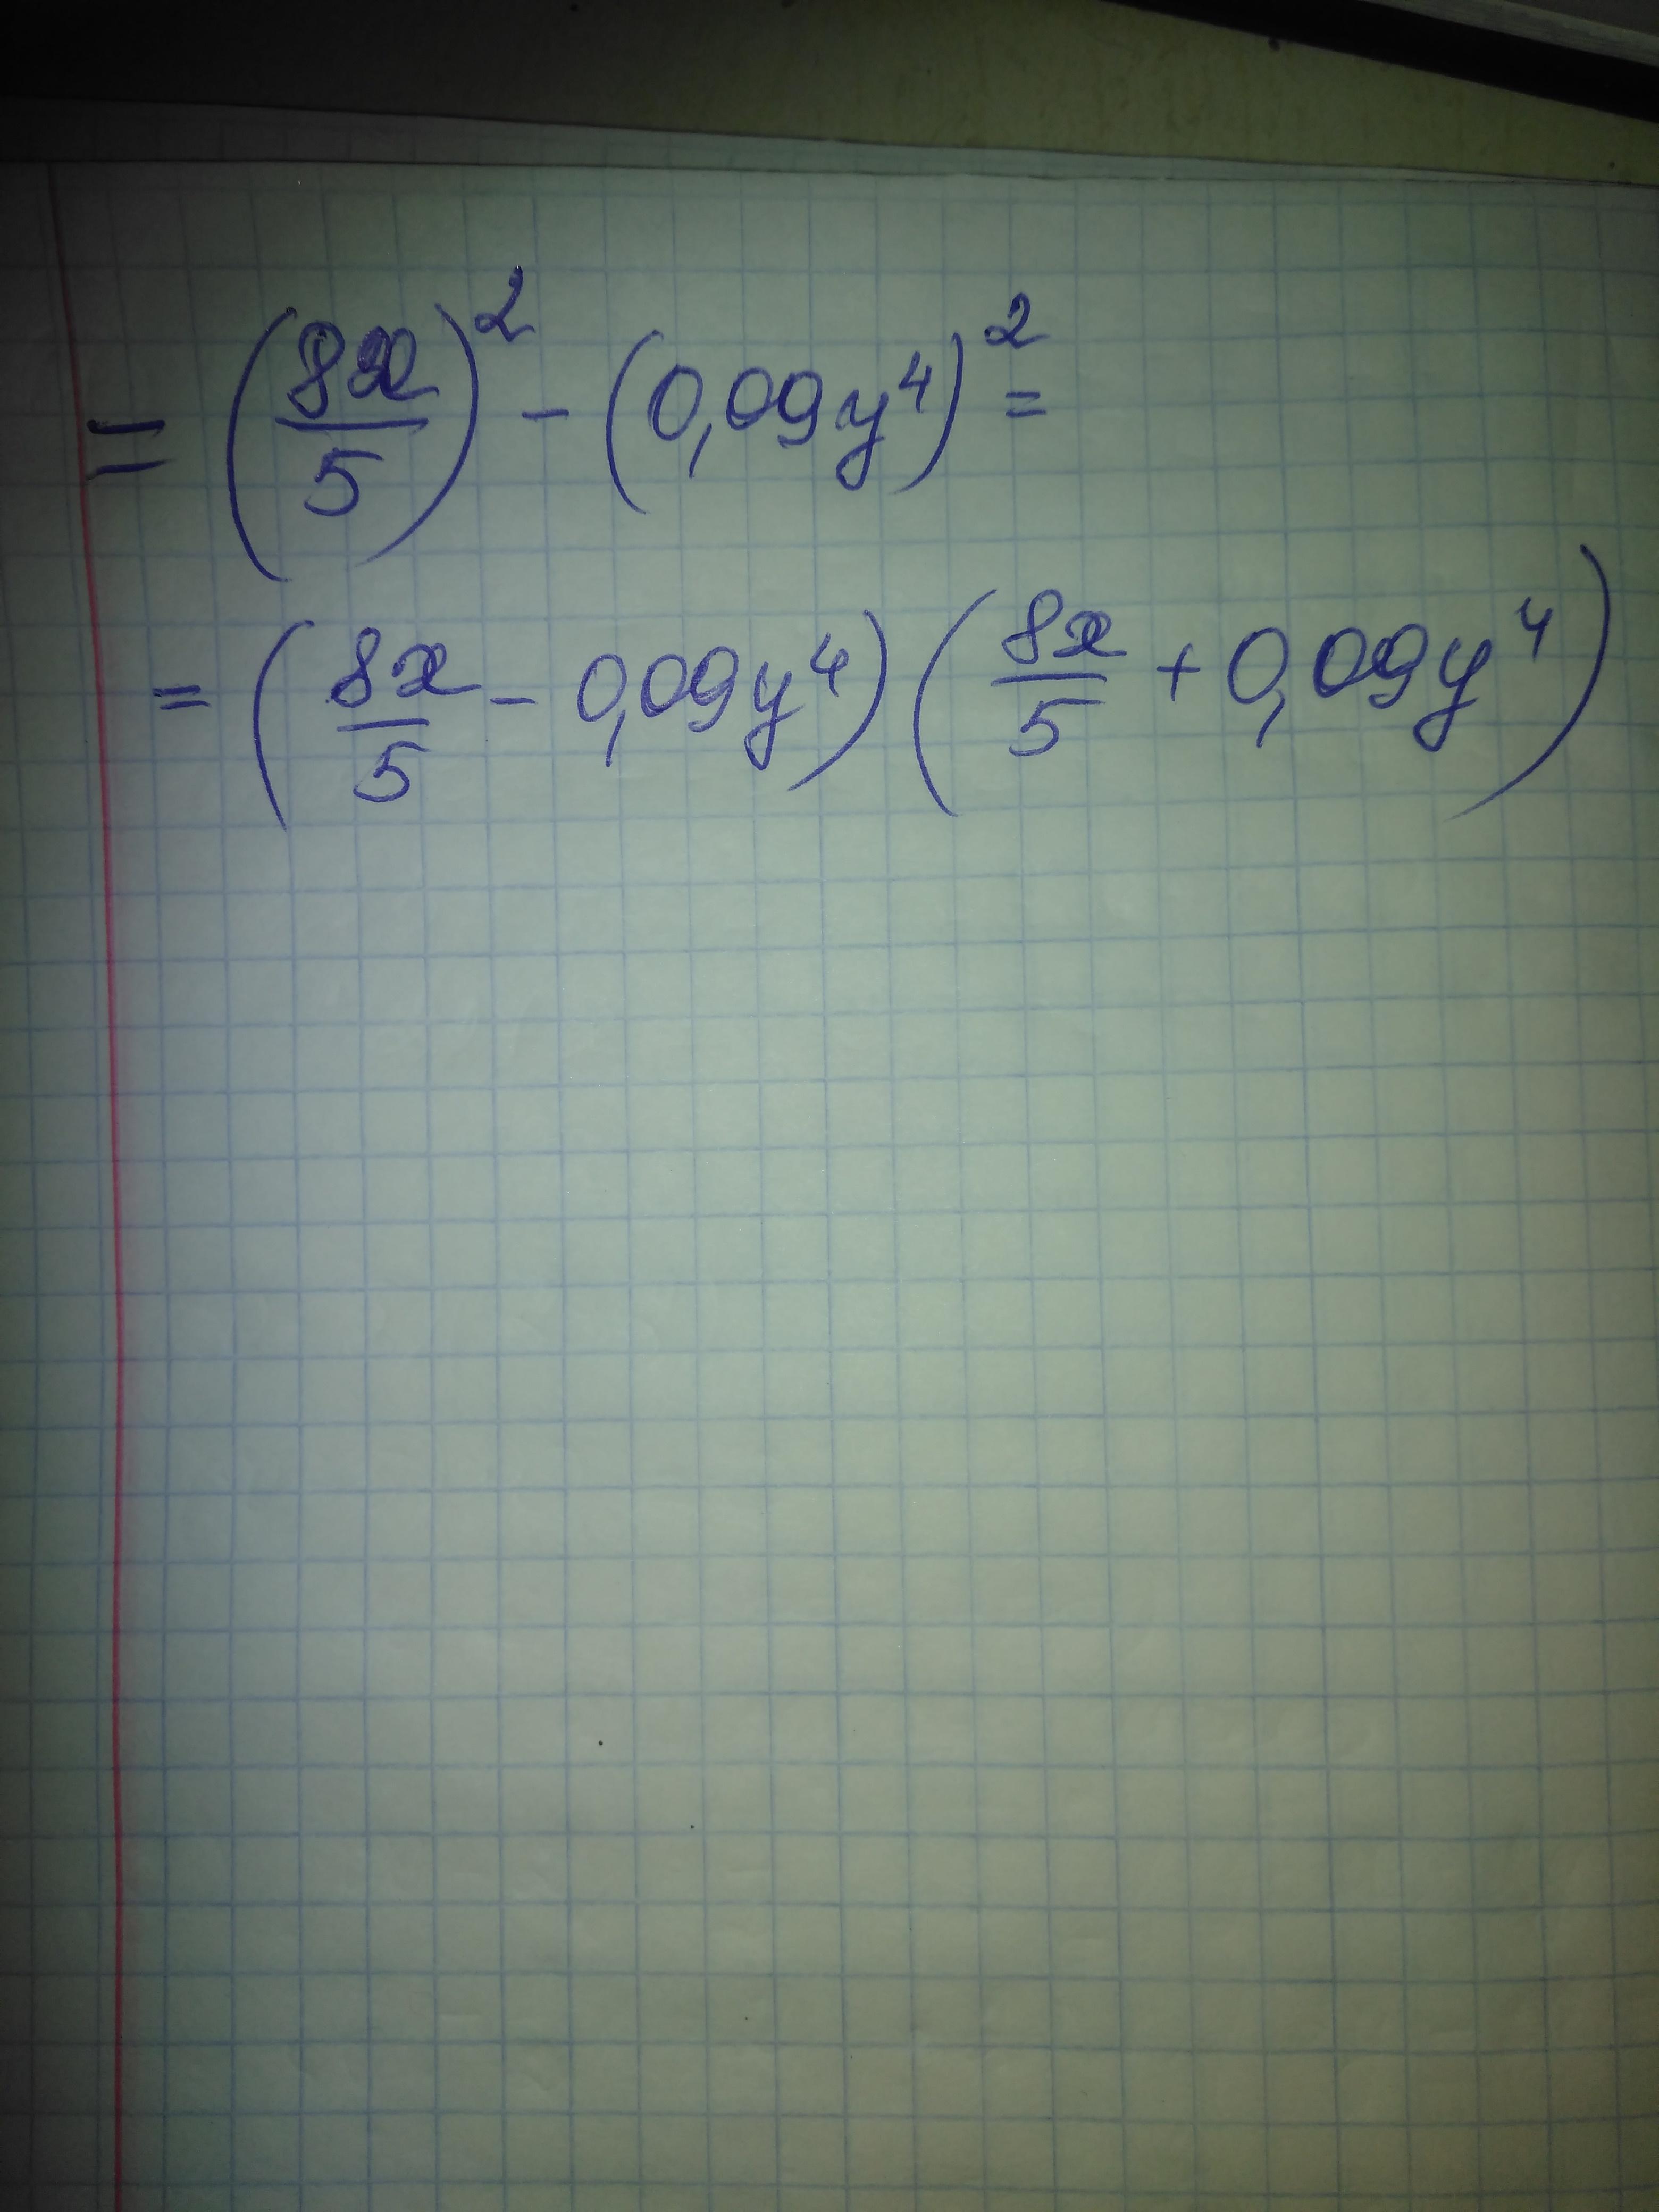 = (8x/5)² - (0,09y⁴)² =
= (8x/5 - 0,09y⁴)(8x/5 + 0,09y⁴)